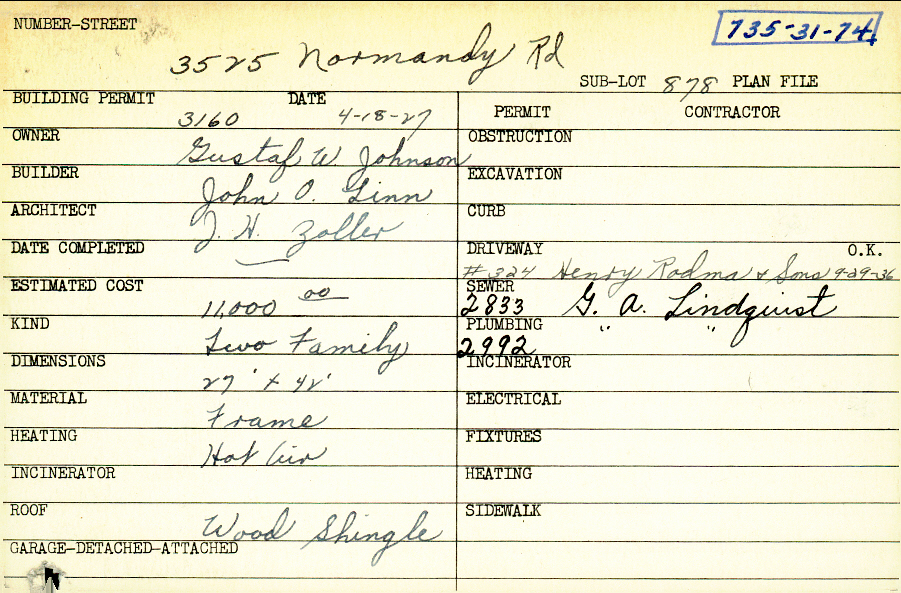 NUMBER-STREET
735-31-74
3525 Normandy Rd
SUB-LOT 878 PLAN FILE
BUILDING PERMIT DATE
3160 4-18-27
OWNER
Gustaf W. Johnson
BUILDER
John O. Linn
ARCHITECT
J. H. Zoller
DATE COMPLETED
ESTIMATED COST
11,000 00
KIND
Two Family
DIMENSIONS
27' x 42'
MATERIAL
Frame
HEATING
Hot Air
INCINERATOR
ROOF
Wood Shingle
GARAGE-DETACHED-ATTACHED
PERMIT CONTRACTOR
OBSTRUCTION
EXCAVATION
CURB
DRIVEWAY O.K.
#324 Henry Rodma & Sons 9-29-36
SEWER
2833 G. A. Lindquist
PLUMBING
2992 " "
INCINERATOR
ELECTRICAL
FIXTURES
HEATING
SIDEWALK